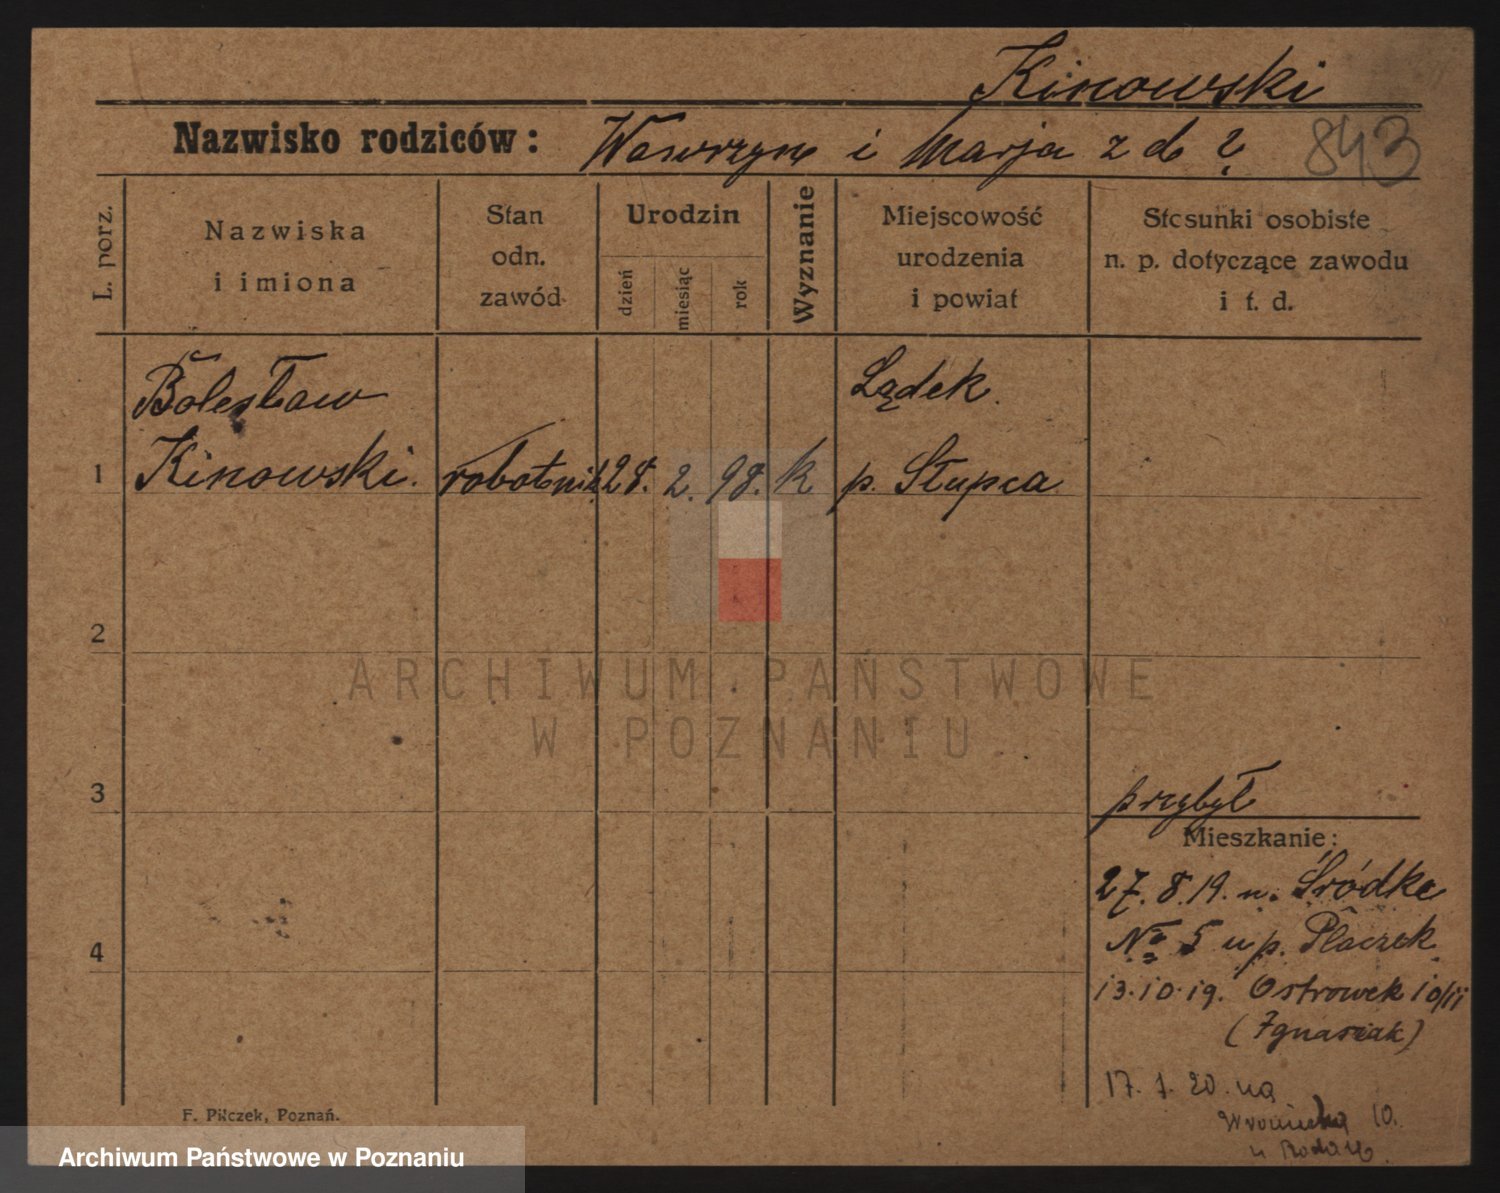 Kinowski
Nazwisko rodziców: Wawrzyn i Marja z d. ? 843
L. porz.
Nazwiska
i imiona
Stan
odn.
zawód
Urodzin
dzień
miesiąc
rok
Wyznanie
Miejscowość
urodzenia
i powiat
Stosunki osobiste
n. p. dotyczące zawodu
i t. d.
Bolesław Lądek.
1 Kinowski. robotnik 28. 2. 98. k p. Słupca
2
ARCHIWUM PAŃSTWOWE
W POZNANIU
3
przybył
Mieszkanie:
27.8.19. n. Śródka
No 5 u p. Placzek
4
13.10.19. Ostrowek 10/II
(Ignasiak)
17.1.20. na
Wroniecka 10.
u
F. Piłczek, Poznań.
Archiwum Państwowe w Poznaniu